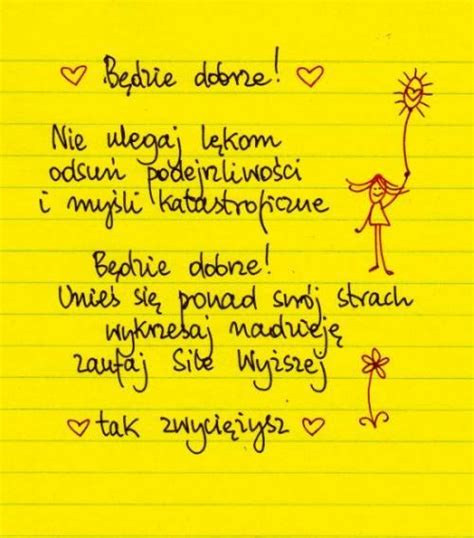 Będzie dobrze!
Nie ulegaj lękom
odsuń podejrzliwości
i myśli katastroficzne
Będzie dobrze!
Unieś się ponad swój strach
wykrzesaj nadzieję
zaufaj Sile Wyższej
tak zwyciężysz